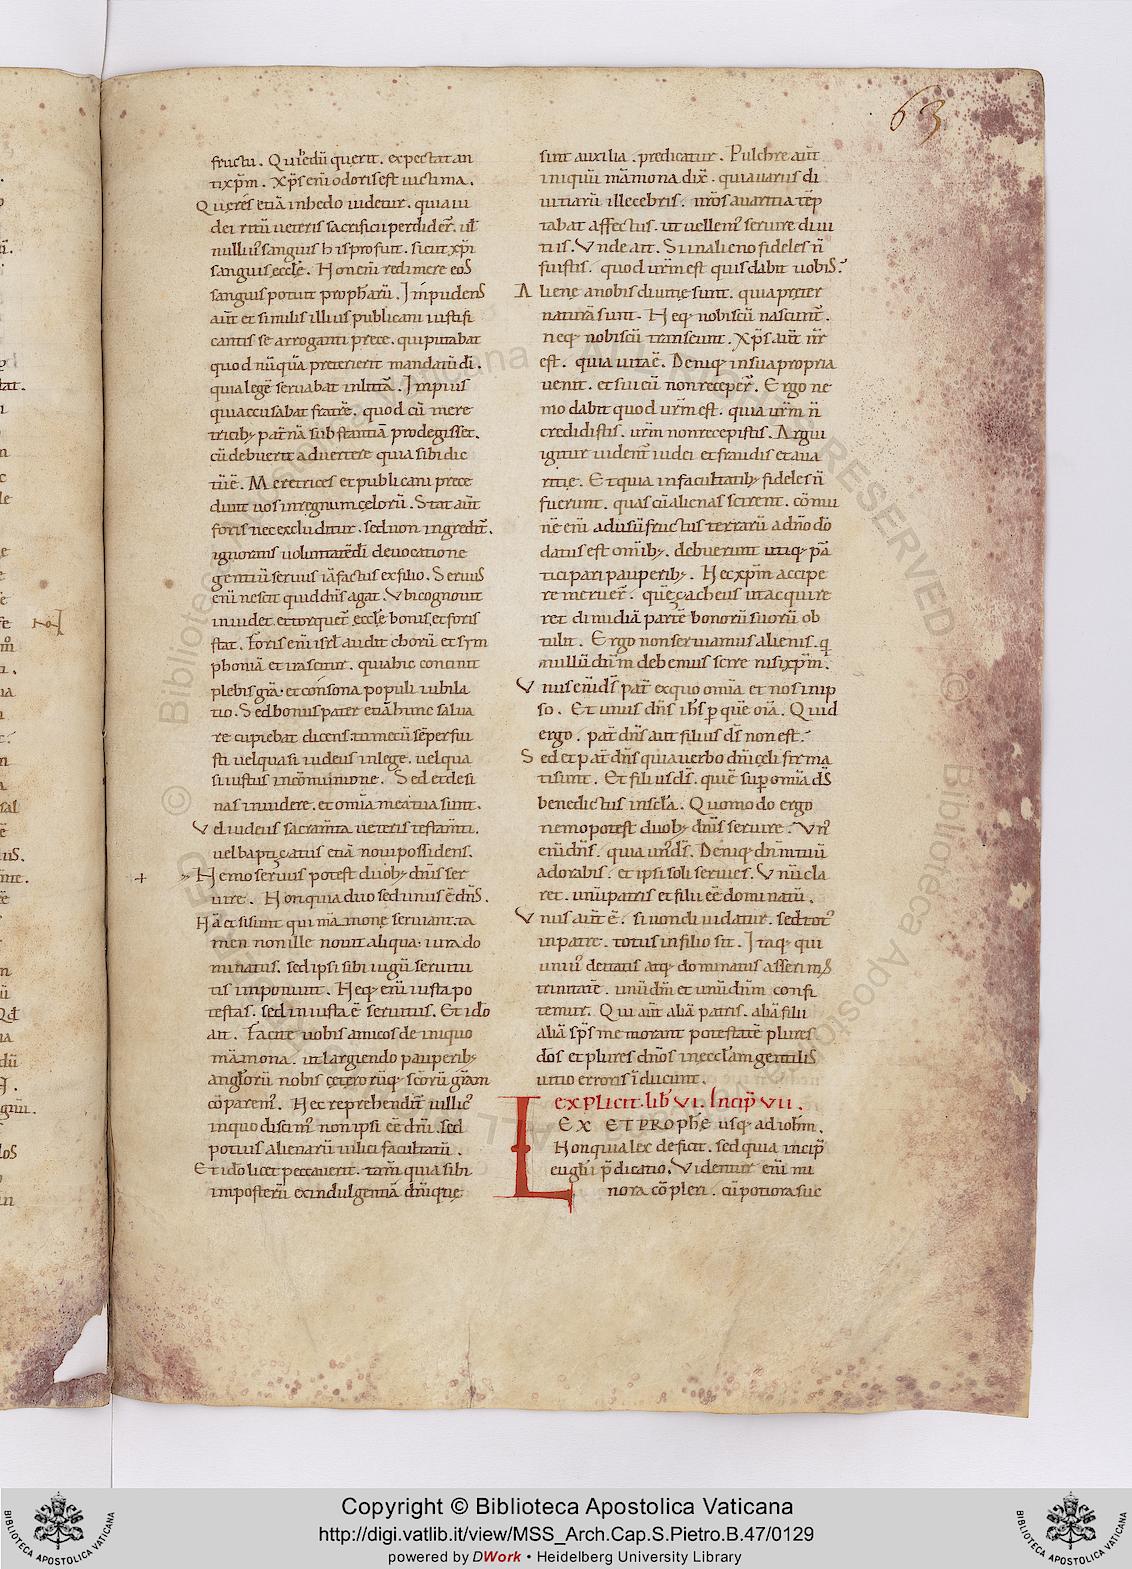 63
fructu. Qui edū quęrit. expectat an
tixp̄m. Xp̄s enī odoris est uictima.
Quęres etiā in hędo iudetur. quia iu
dei ritū ueteris sacrificii perdider̄. ut
nulliu᷒ sanguis his profuit. sicut xp̄i
sanguis eccłę. Non enī redimere eos
sanguis potuit prophārū. Impudens
aūt et similis illius publicani iustifi
cantis se arroganti prece. qui putabat
quod nūquā preterierit mandatū dī.
quia legē seruabat in littā. Impius
quia accusabat fratrē. quod cū mere
tricib; patnā substantiā prodegisset.
cū debuerit aduertere quia sibi dic
tūē. Meretrices et publicani prece
dunt uos in regnum cęlorū. Stat aūt
foris nec excluditur. sed non ingredit̄.
ignorans uoluntatē dī de uocatione
gentiū seruus iā factus ex filio. Seruus
enī nescit quid dn̄s agat. Ubi cognouit
inuidet. et torquet̄ eccłę bonis. et foris
stat. Foris enī isrł audit chorū et sym
phoniā et irascitur. quia hic concinit
plebis grā. et consona populi iubila
tio. Sed bonus pater etiā hunc salua
re cupiebat dicens. tu mecū sēper fui
sti uel quasi iudeus in lege. uel qua
si iustus in cōmunione. Sed et desi
nas inuidere. et omīa mea tua sunt.
Vel iudeus sacramta ueteris testamti.
uel baptiçatus etiā noui possidens.
+ Nemo seruus potest duob; dn̄is ser
uire. Non quia duo sed unus ē dn̄s.
Nā et si sunt qui māmonę seruant. ta
men non ille nouit aliqua iura do
minatus. sed ipsi sibi iugū seruitu
tis imponunt. Neq; enī iusta po
testas. sed iniusta ē seruitus. Et ido
ait. Facite uobis amicos de iniquo
māmona. ut largiendo pauperib;
angłorū nobis cęterorūq; scōrū grām
cōparem᷒. Nec reprehendit̄ uillic᷒
in quo discim᷒ non ipsi eē dnī. sed
potius alienarū uilici facultatū.
Et ido licet peccauerit. tam̄ quia sibi
in posterū ex indulgentiā dn̄i quę
sint auxilia. predicatur. Pulchre aūt
iniquū māmona dix̄. quia uariis di
uitiarū illecebris. nr̄os auaritia tēp
tabat affectus. ut uellem᷒ seruire diui
tiis. Vnde ait. Si in alieno fideles n̄
fuistis. quod ur̄m est quis dabit uobis?
Alienę a nobis diuitię sunt. quia pręter
naturā sunt. Neq; nobiscū nascunt̄.
neq; nobiscū transeunt. Xp̄s aūt nr̄
est. quia uita ē. Deniq; in sua propria
uenit. et sui eū non receper̄. Ergo ne
mo dabit quod ur̄m est. quia ur̄m n̄
credidistis. ur̄m non recepistis. Argui
igitur uident̄ iudei et fraudis et aua
ritię. Et quia in facultatib; fideles n̄
fuerunt. quas cū alienas scirent. cōmu
nē enī ad usū fructus terrarū a dn̄o do
datus est omīb;. debuerunt utiq; pā
ticipari pauperib;. Nec xp̄m accipe
re meruer̄. quē çacheus ut acquire
ret dimidiā partē bonorū suorū ob
tulit. Ergo non seruiamus alienis. q
nullū dn̄m debemus scire nisi xp̄m.
Vnus enī ds̄ pat̄ ex quo omīa et nos in ip
so. Et unus dn̄s ihs̄ p quē oīa. Quid
ergo. pat̄ dn̄s aut filius ds̄ non est?
Sed et pat̄ dn̄s quia uerbo dn̄i cęli firma
ti sunt. Et filius ds̄. qui ē sup omīa ds̄
benedictus in scła. Quomodo ergo
nemo potest duob; dn̄is seruire? Vn᷒
enī dn̄s. quia un᷒ ds̄. Deniq; dn̄m tuū
adorabis. et ipsi soli seruies. Vnū cla
ret. unū patris et filii eē dominatū.
Vnus aūt ē. si non diuidatur. sed tot᷒
in patre. totus in filio sit. Itaq; qui
unī᷒ deitatis atq; dominatus asserim᷒
trinitatē. unū dm̄ et unū dn̄m confi
temur. Qui aūt aliā patris. aliā filii
aliā sp̄s memorant potestatē plures
dōs et plures dn̄os in eccłam gentilis
uitio erroris īducunt.
explicit. lib vi. Incip̄ vii.
LEX ET PROPHĘ usq; ad iohn̄.
Non quia lex deficit. sed quia incip̄
eugłii p̄dicatio. Videntur enī mi
nora cōpleri. cū potiora suc
Copyright © Biblioteca Apostolica Vaticana
http://digi.vatlib.it/view/MSS_Arch.Cap.S.Pietro.B.47/0129
powered by DWork • Heidelberg University Library